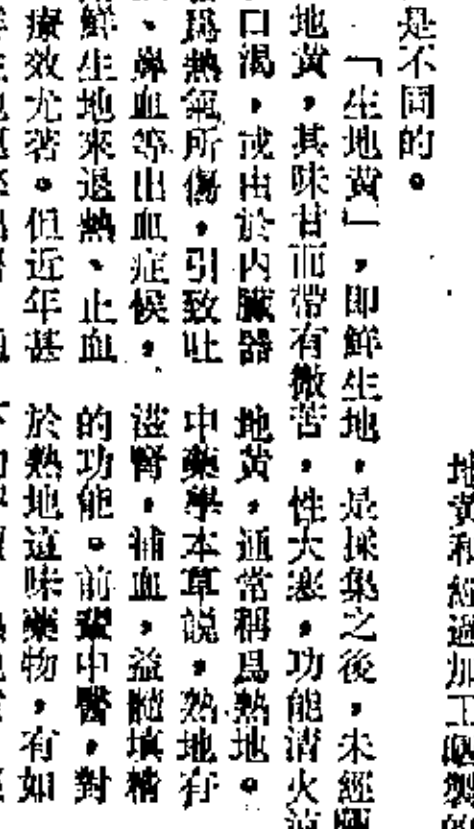 地黃和經過加工曬製的
是不同的。
「生地黃」，即鮮生地，是採集之後，未經曬
地黃，其味甘而帶有微苦，性大寒，功能清火涼
口渴，或由於內臟器
爲熱氣所傷，引致吐
、鼻血等出血症候，
鮮生地來退熱、止血
療效尤著。但近年甚
地黃，通常稱爲熟地。
中藥學本草說，熟地有
滋腎，補血，益髓填精
的功能。前輩中醫，對
於熟地這味藥物，有如